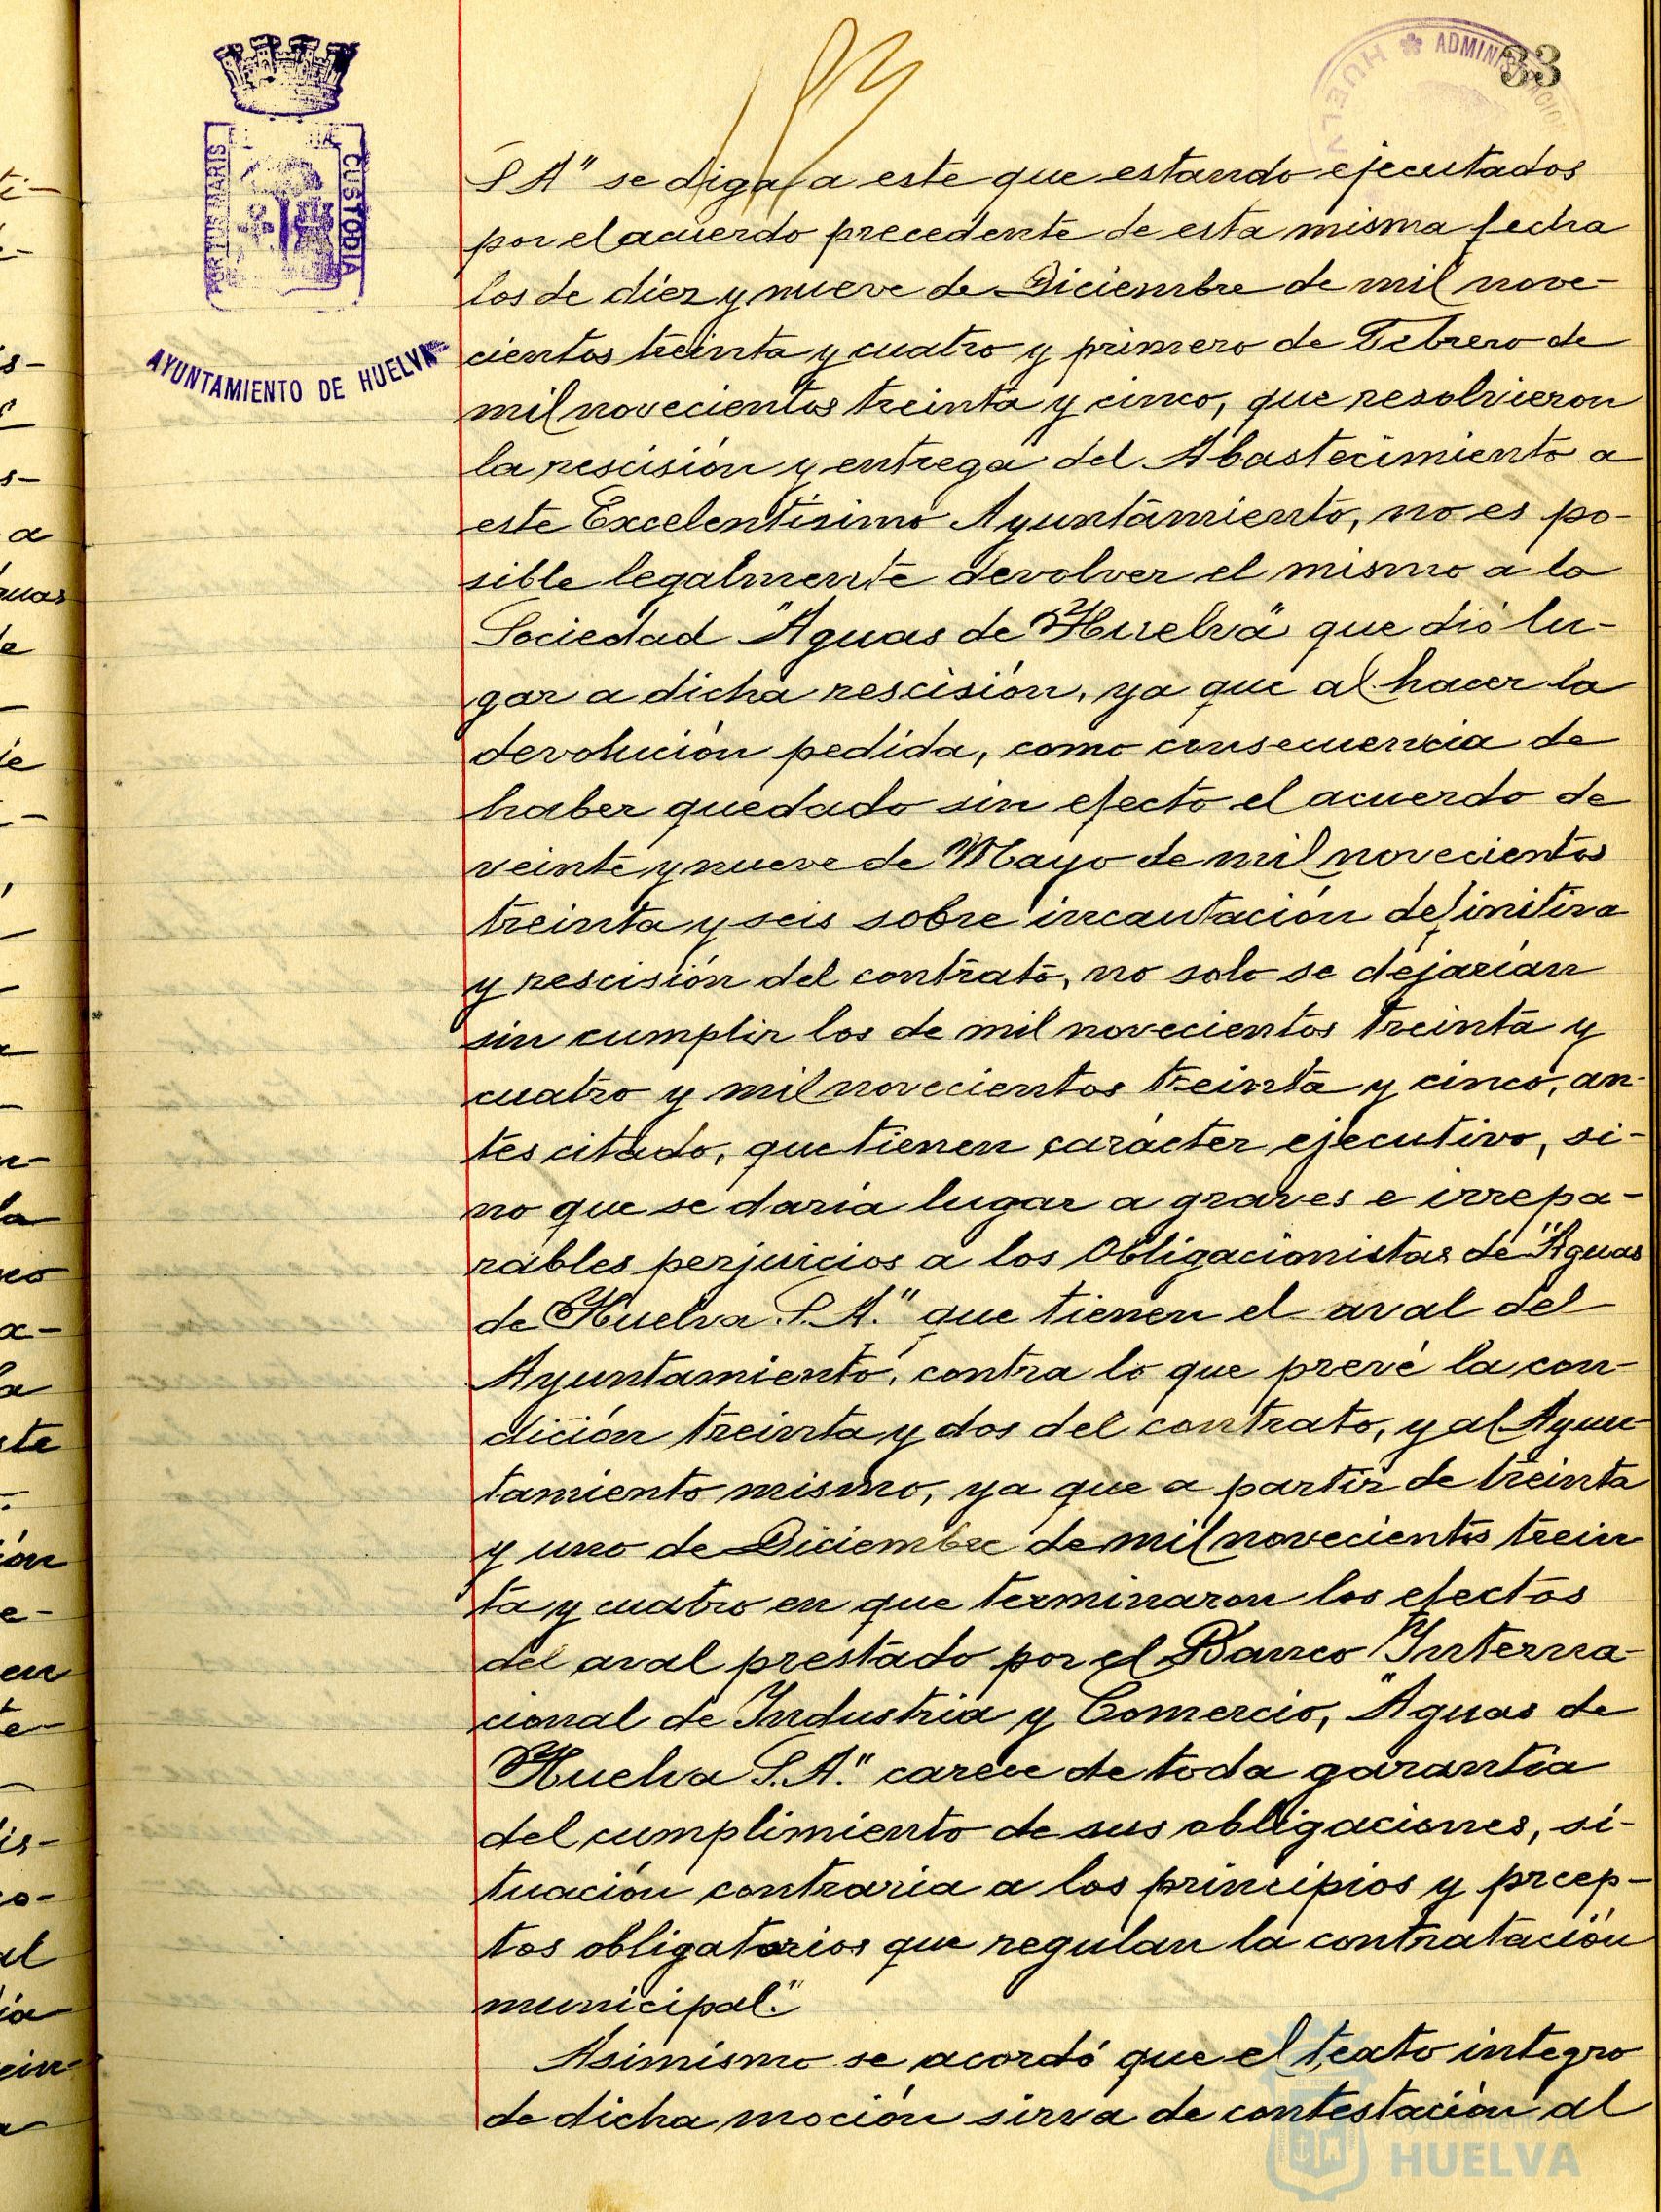 33
ADMINISTRACION
HUELVA
PORTUS MARIS
CUSTODIA
AYUNTAMIENTO DE HUELVA
S A" se diga a este que estando ejecutados
por el acuerdo precedente de esta misma fecha
los de diez y nueve de Diciembre de mil nove-
cientos treinta y cuatro y primero de Febrero de
mil novecientos treinta y cinco, que resolvieron
la rescisión y entrega del Abastecimiento a
este Excelentísimo Ayuntamiento, no es po-
sible legalmente devolver el mismo a la
Sociedad "Aguas de Huelva" que dió lu-
gar a dicha rescisión, ya que al hacer la
devolución pedida, como consecuencia de
haber quedado sin efecto el acuerdo de
veinte y nueve de Mayo de mil novecientos
treinta y seis sobre incautación definitiva
y rescisión del contrato, no solo se dejarían
sin cumplir los de mil novecientos treinta y
cuatro y mil novecientos treinta y cinco, an-
tes citado, que tienen carácter ejecutivo, si-
no que se daría lugar a graves e irrepa-
rables perjuicios a los Obligacionistas de "Aguas
de Huelva S.A." que tienen el aval del
Ayuntamiento, contra lo que prevé la con-
dición treinta y dos del contrato, y al Ayun
tamiento mismo, ya que a partir de treinta
y uno de Diciembre de mil novecientos trein
ta y cuatro en que terminaron los efectos
del aval prestado por el Banco Interna-
cional de Industria y Comercio, "Aguas de
Huelva S.A." carece de toda garantía
del cumplimiento de sus obligaciones, si-
tuación contraria a los principios y prcep-
tos obligatorios que regulan la contratación
municipal."
Asimismo se acordó que el texto integro
de dicha moción sirva de contestación al
Ayuntamiento de
HUELVA